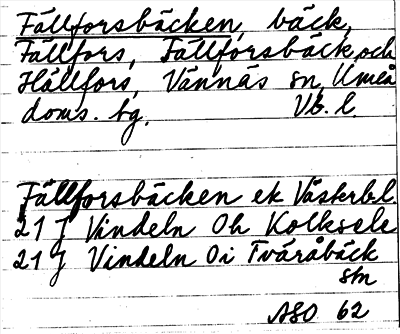 Fällforsbäcken, bäck,
Fällfors, Fällforsbäck, och
Hällfors, Vännäs sn, Umeå
doms. hg. Vb. l.
Fällforsbäcken ek Västerb.l.
21 J Vindeln Oh Kolksele
21 J Vindeln Oi Tväråbäck
stn
ASO 62